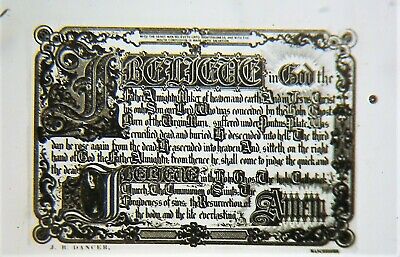 WITH THE HEART MAN BELIEVETH UNTO RIGHTEOUSNESS AND WITH THE
MOUTH CONFESSION IS MADE UNTO SALVATION
I BELIEVE in God the
Father Almighty, Maker of heaven and earth, And in Jesus Christ
his only Son our Lord, Who was conceived by the Holy Ghost
Born of the Virgin Mary, suffered under Pontius Pilate, Was
crucified, dead and buried. He descended into hell; The third
day he rose again from the dead, He ascended into heaven, And sitteth on the right
hand of God the Father Almighty, from thence he shall come to judge the quick and
the dead. I BELIEVE in the Holy Ghost, The holy Catholick
Church, The Communion of Saints, The
Forgiveness of sins, the Resurrection of Amen
the body, and the life everlasting
J. B. DANCER, MANCHESTER